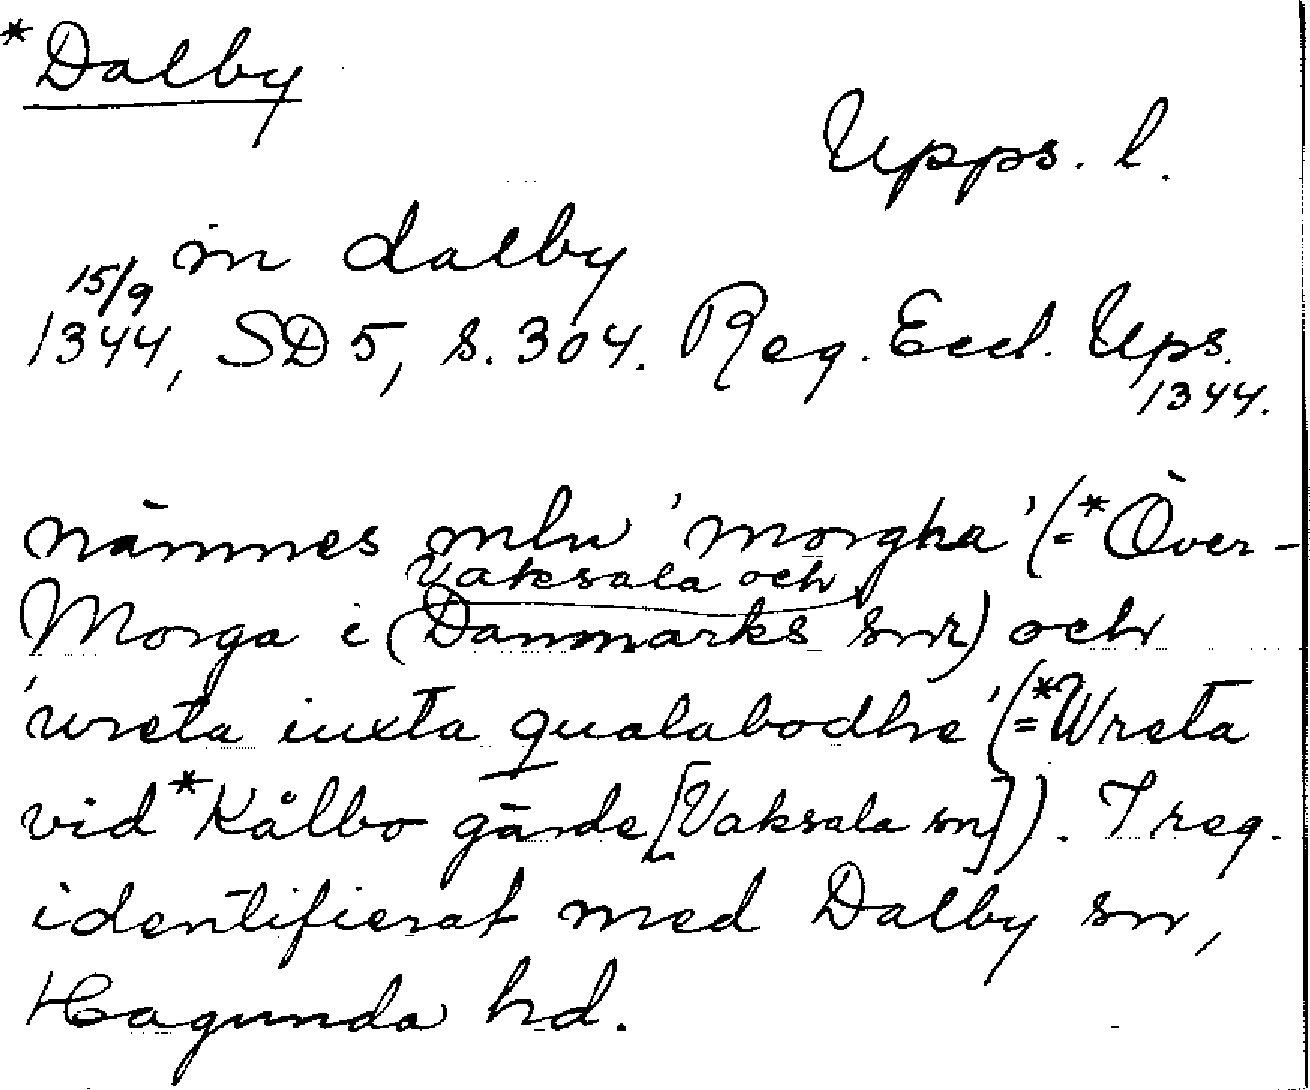 *Dalby
Upps. l.
in dalby
15/9
1344, SD5, s. 304. Reg. Eccl. Ups.
1344.
nämnes mln 'morgha' (=*Över-
Vaksala och
Morga i (Danmarks snr) och
'wreta iuxta qualabodhe' (=*Wreta
vid *Kålbo gärde [Vaksala sn]). I reg.
identifierat med Dalby sn,
Hagunda hd.